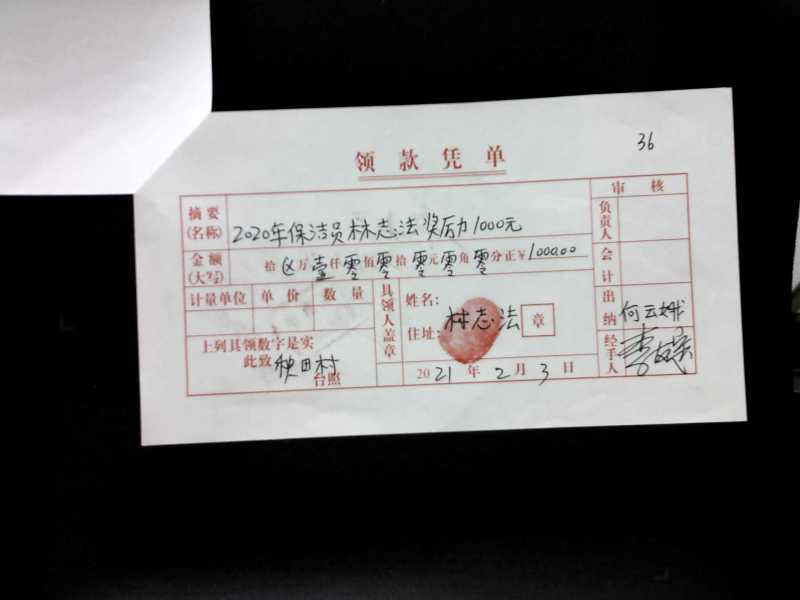 36
领款凭单
审核
摘要(名称) 2020年保洁员林志法奖励1000元
负责人
金额(大写) 拾 万壹仟零佰零拾零元零角零分正￥1000.00
会计
计量单位 单价 数量
具领人盖章
姓名:
林志法 章
住址:
出纳 何云娥
上列具领数字是实
此致 秧田村
台照
2021年2月3日
经手人